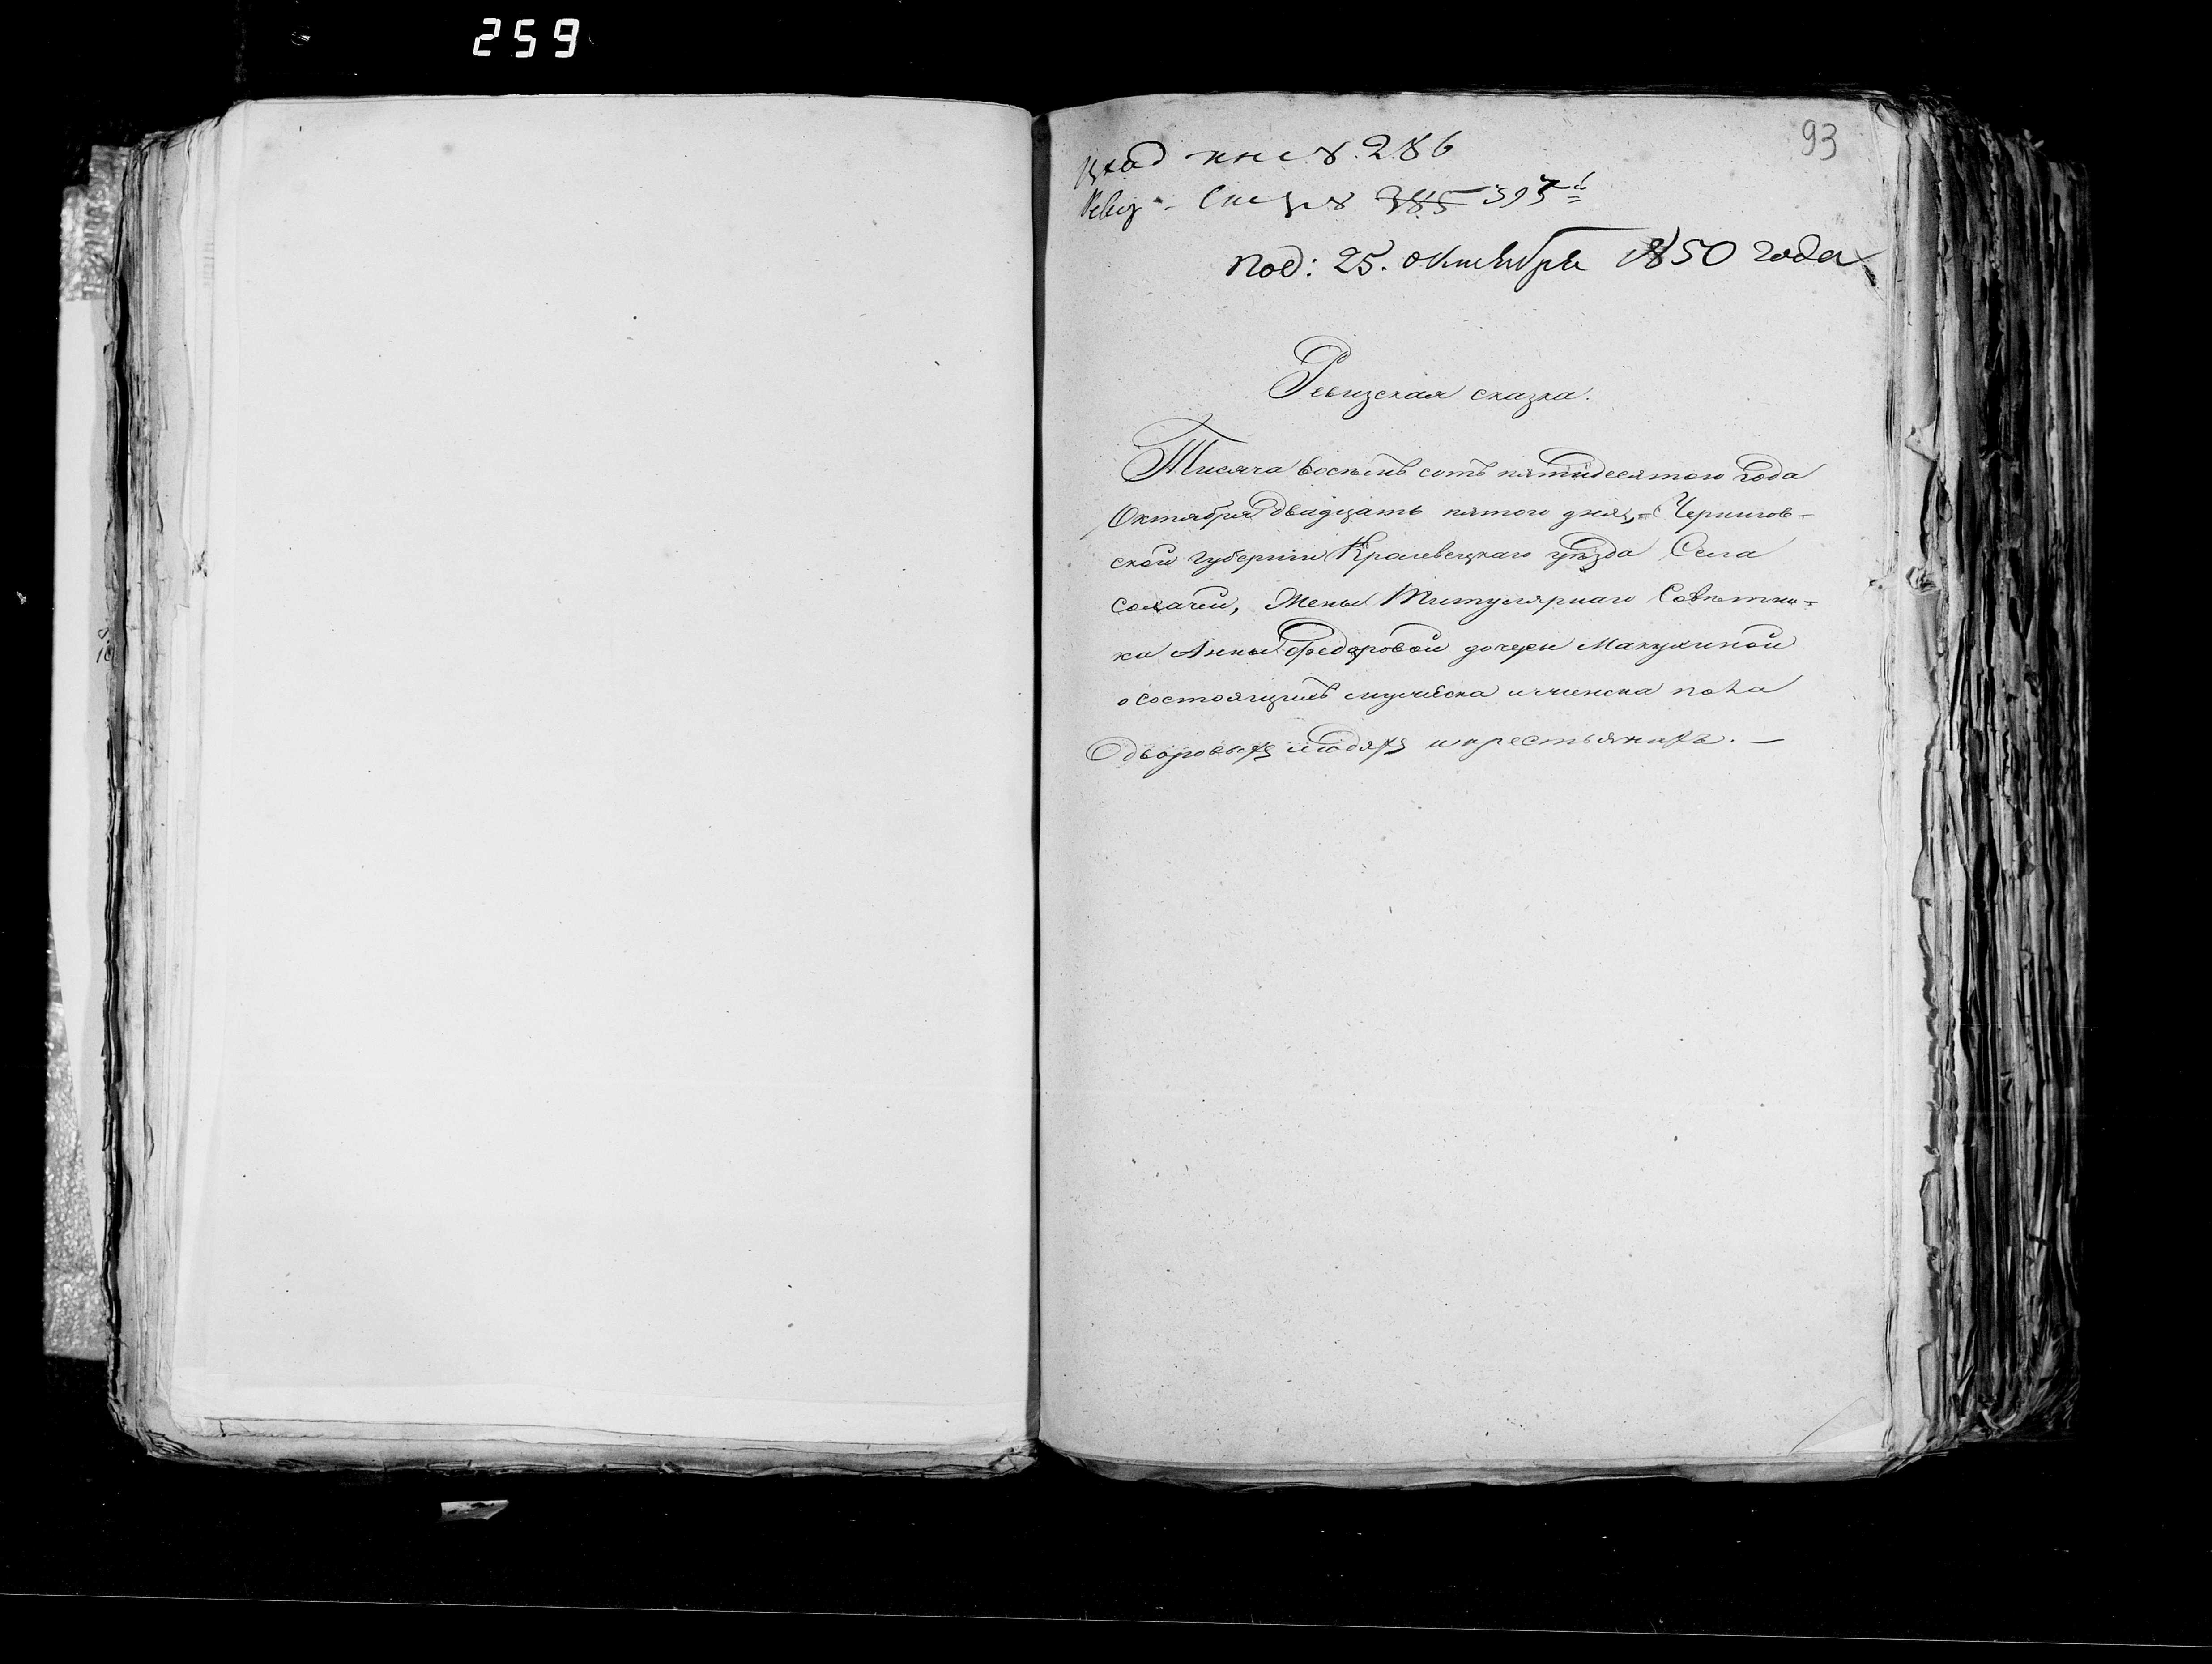 259
93
вход кн № 286
Ревиз. Ск № 385 395
под: 25. октября 1850 года
Ревизская сказка.
Тисяча восемь сотъ пятидесятого года
Октября двадцать пятого дня, Чернигов-
ской губернии Кролевецкаго уѣзда Села
Сохачей, Жены Титулярнаго Совѣтни-
ка Анны Федоровой дочери Макухиной
о состоящихъ мужеска и женска пола
Одворовыхъ людяхъ и крестьянахъ. —